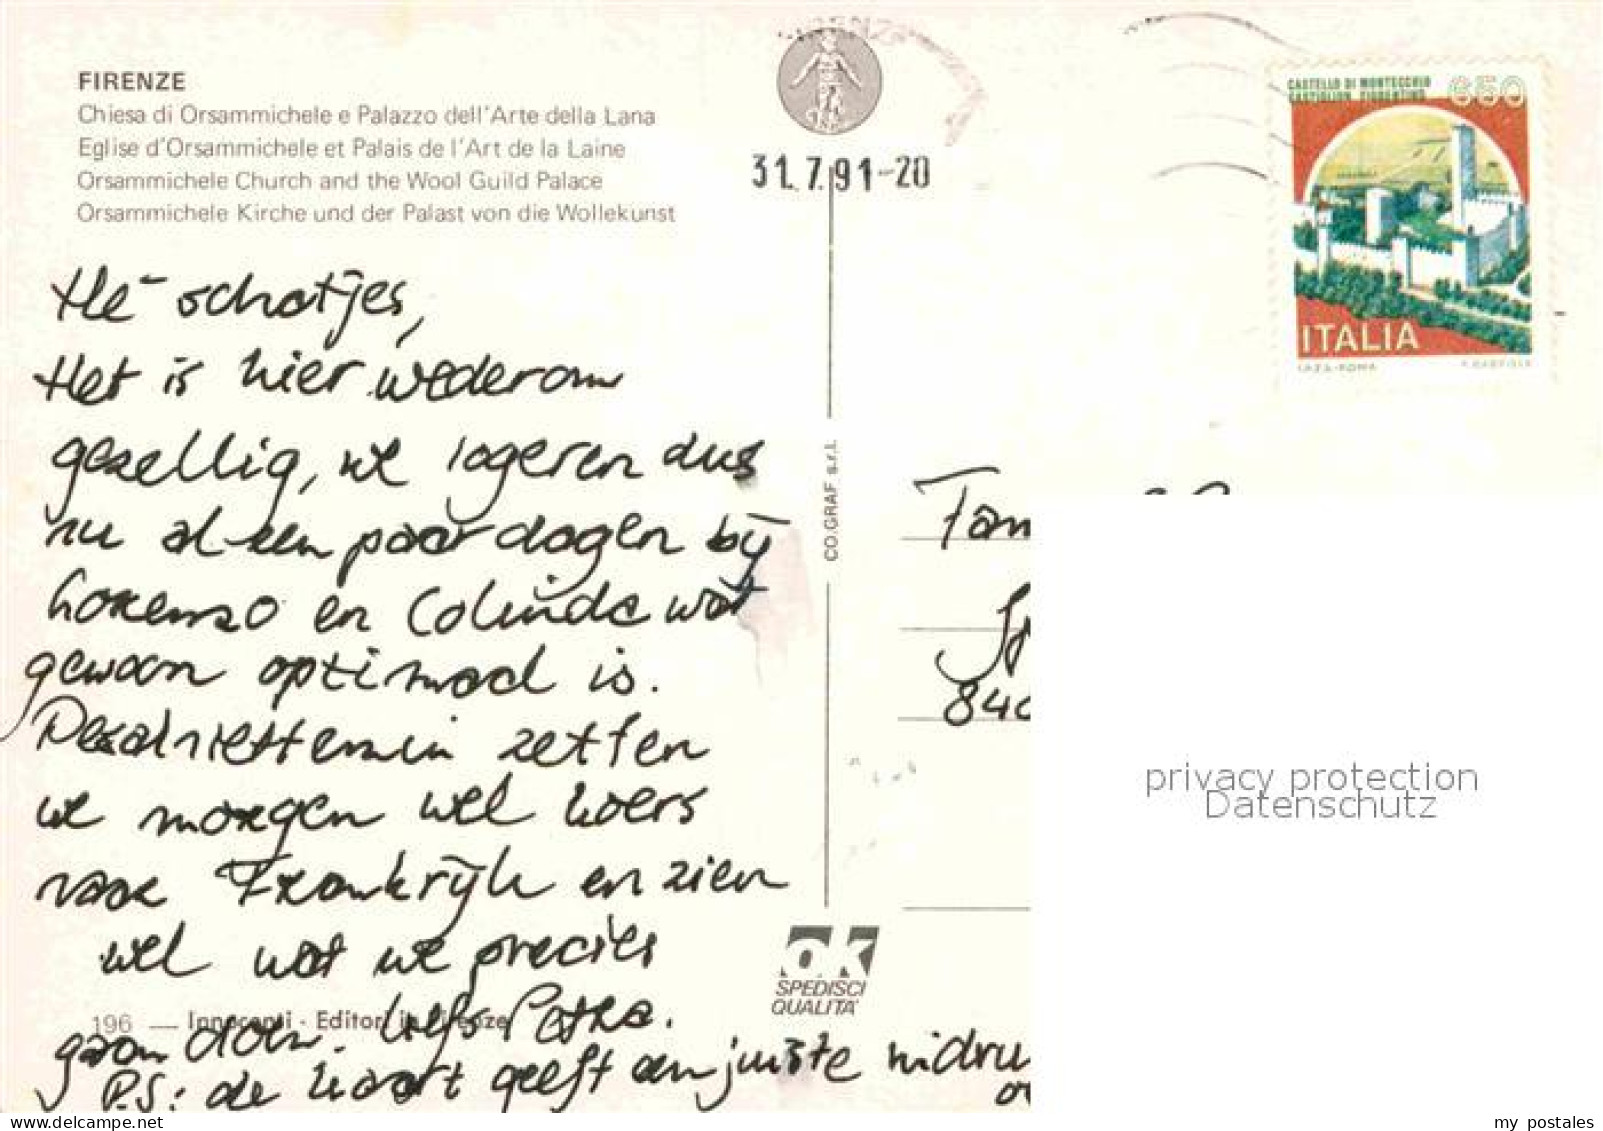 FIRENZE
Chiesa di Orsammichele e Palazzo dell'Arte della Lana
Eglise d'Orsammichele et Palais de l'Art de la Laine
Orsammichele Church and the Wool Guild Palace
Orsammichele Kirche und der Palast von die Wollekunst
31.7.91-20
CASTELLO DI MONTECCHIO
CASTIGLION FIORENTINO
650
ITALIA
I.P.Z.S.-ROMA
Hé schatjes,
Het is hier wederom
gezellig, we logeren dus
nu al een paar dagen bij
Lorenzo en Colinda wat
gewoon optimaal is.
zetten
we morgen wel koers
naar Frankrijk en zien
wel wat we precies
gaan doen. Liefs Petra.
P.S: de kaart geeft een juiste
CO.GRAF s.r.l.
Fam
840
OK
SPEDISCI
QUALITA'
196 — Innocenti - Editori in Firenze
privacy protection
Datenschutz
my postales